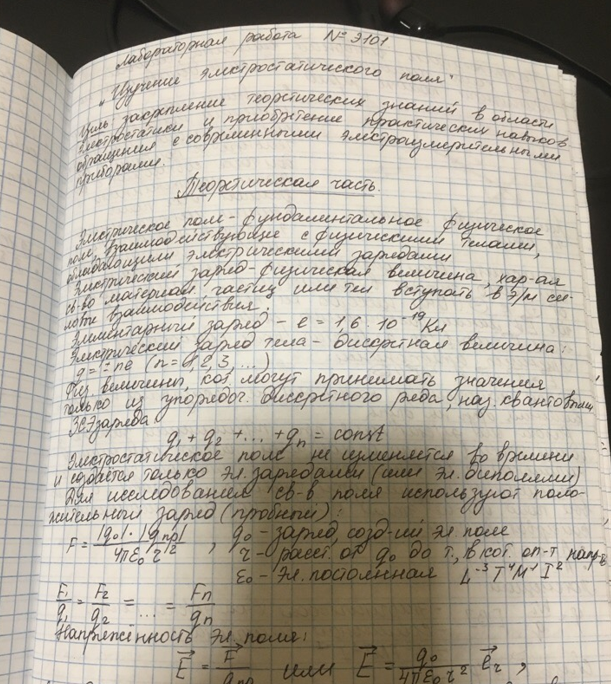 Лабораторная работа №Э101
„Изучение электростатического поля"
Цель закрепление теоретических знаний в области
электростатики и приобретение практических навыков
обращения с современными электроизмерительными
приборами.
Теоретическая часть.
Электрическое поле - фундаментальное физическое
поле, взаимодействующее с физическими телами,
обладающими электрическими зарядами
Электрический заряд - физическая величина, хар-ая
св-во материал. частиц или тел вступать в э/м
взаимодействия.
Элементарный заряд - e = 1,6 · 10⁻¹⁹ Кл
Электрический заряд тела - дискретная величина:
(n = 1, 2, 3, ...)
Физ величины, кот. могут принимать значения
только из упорядоч. дискретного ряда, наз. квантовыми
ЗСЭзаряда
q₁ + q₂ + ... + qₙ = const
Электростатическое поле не изменяется во времени
и создается только эл. зарядами (или эл. диполями)
Для исследования св-в поля используют поло-
жительный заряд (пробный):
F = |q₀| · |qпр| / 4πε₀r² , q₀ - заряд, созд-ий эл. поле
r - расст. от q₀ до т., в кот. оп-т напр.
ε₀ - эл. постоянная L⁻³T⁴M⁻¹I²
F₁/q₁ = F₂/q₂ = ... = Fₙ/qₙ
Напряженность эл. поля:
E⃗ = F⃗/qпр или E⃗ = q₀/4πε₀r² e⃗r ,